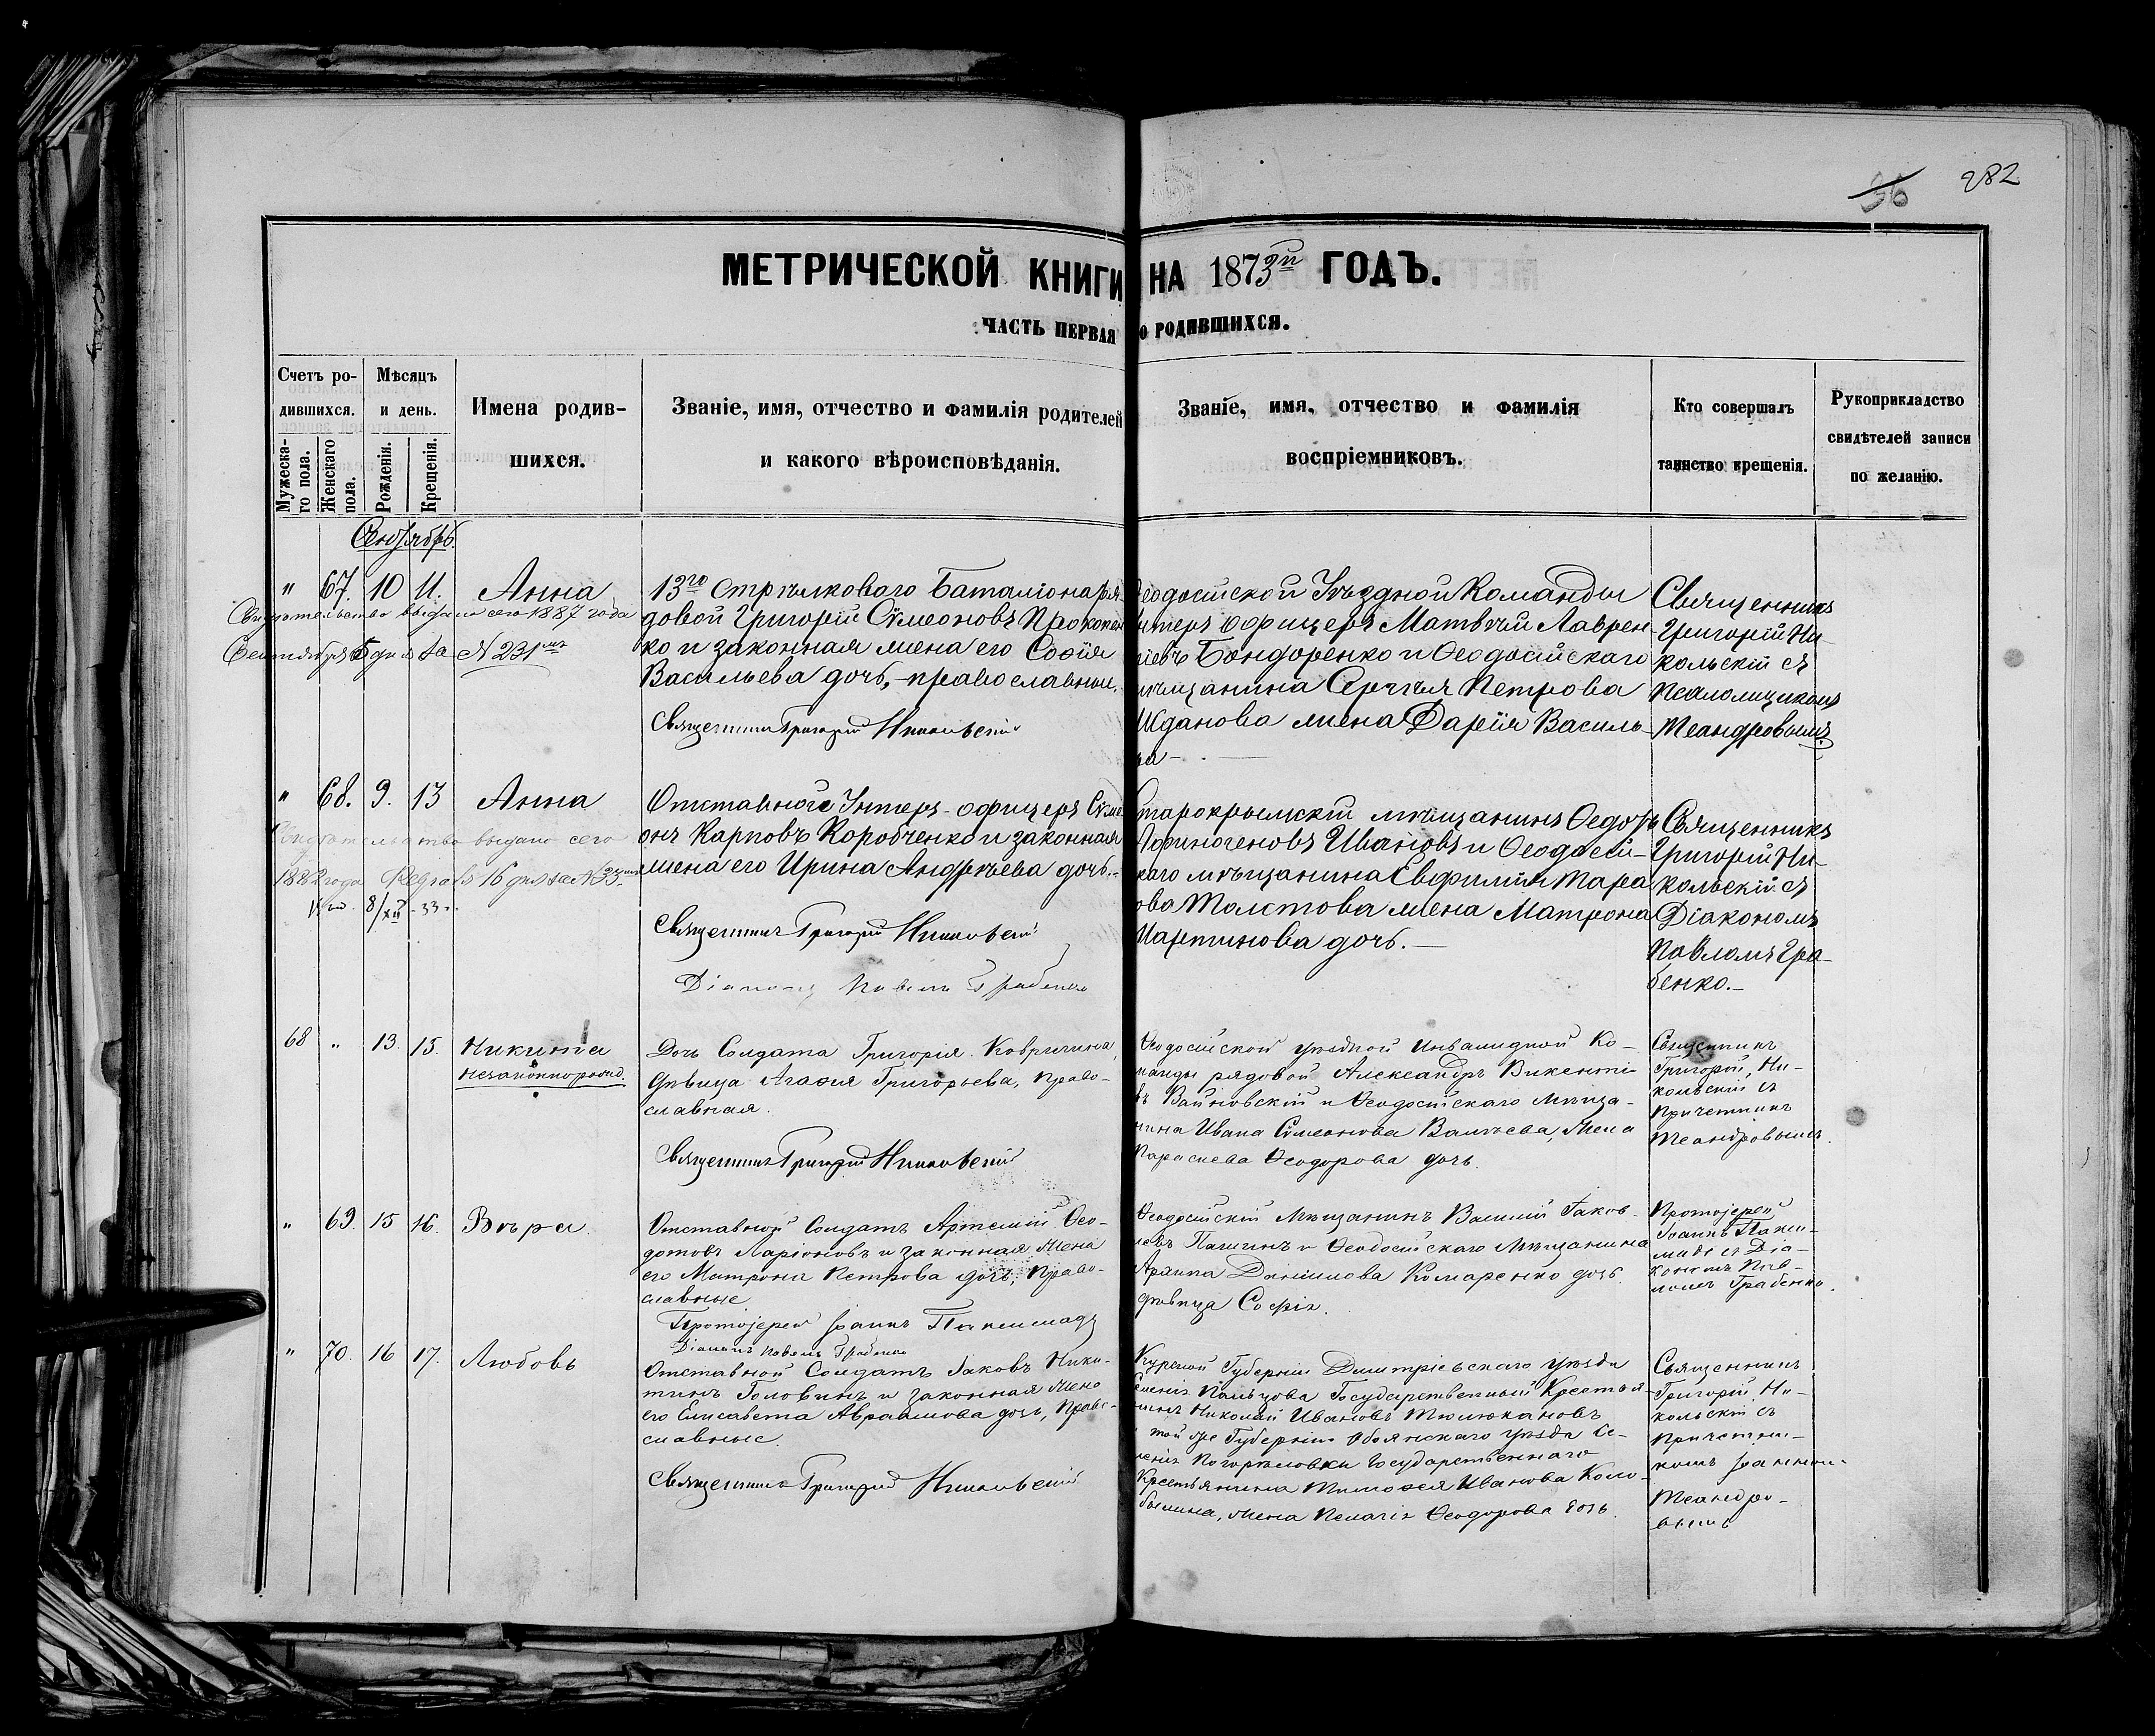 36 282
МЕТРИЧЕСКОЙ КНИГИ НА 1873ій ГОДЪ.
ЧАСТЬ ПЕРВАЯ О РОДИВШИХСЯ.
Счетъ ро-
дившихся.
Мужеска-
го пола.
Женскаго
пола.
Мѣсяцъ
и день.
Рожденія.
Крещенія.
Имена родив-
шихся.
Званіе, имя, отчество и фамилія родителей
и какого вѣроисповѣданія.
Званіе, имя, отчество и фамилія
воспріемниковъ.
Кто совершалъ
таинство крещенія.
Рукоприкладство
свидѣтелей записи
по желанію.
Сентябрь.
" 67. 10 11. Анна
Свидѣтельство выдано сего 1887 года
Сентября 5 дня за № 231мъ
13го Стрѣлковаго Баталіона ря-
довой Григорій Сѵмеоновъ Прокопен
ко и законная жена его Софія
Васильева дочь, православные.
Священникъ Григорій Никольскій
Ѳеодосійской Уѣздной Команды
унтеръ офицеръ Матвѣй Лаврен
тіевъ Бондоренко и Ѳеодосійскаго
мѣщанина Сергѣя Петрова
Жданова жена Дарія Василь-
ва
Священникъ
Григорій Ни-
кольскій съ
Псаломщикомъ
Теандровымъ.
" 68. 9. 13 Анна
Свидѣтельство выдано сего
1882 года Февраля 16 дня за № 33мъ
8/XII - 33 г.
Отставного Унтеръ-офицеръ Сѵме
онъ Карповъ Коробченко и законная
жена его Ирина Андрѣева дочь.
Священникъ Григорій Никольскій
Діаконъ Павелъ Грабенко
Старокрымскій мѣщанинъ Ѳедоръ
Афиногеновъ Ивановъ и Ѳеодосій-
скаго мѣщанина Евфимія Тара
сова Толстова жена Матрона
Мартинова дочь.
Священникъ
Григорій Ни-
кольскій съ
Діакономъ
Павломъ Гра-
бенко.
68 " 13. 15. Никита
незаконнорожд.
Дочь Солдата Григорія Ковригина,
дѣвица Агафія Григорьева, право-
славная.
Священникъ Григорій Никольскій
Ѳеодосійской уѣздной инвалидной Ко-
манды рядовой Александръ Викенті-
въ Войновскій и Ѳеодосійскаго мѣща-
нина Ивана Сѵмеонова Валѣева, жена
Параскева Ѳеодорова дочь.
Священникъ
Григорій Ни-
кольскій съ
Причетникомъ
Теандровымъ.
" 69. 15 16. Вѣра.
Отставной Солдатъ Артемій Ѳео-
дотовъ Ларіоновъ и законная жена
его Матрона Петрова дочь, право-
славные
Протоіерей Іоаннъ
Діаконъ Павелъ Грабенко
Ѳеодосійскій мѣщанинъ Василій Іаков-
левъ Пашинъ и Ѳеодосійскаго мѣщанина
Архипа Даніилова Комаренко дочь
дѣвица Софія.
Протоіерей
Іоаннъ
съ Діа-
кономъ Пав-
ломъ Грабенко.
" 70. 16 17. Любовь
Отставной Солдатъ Іаковъ Ники-
тинъ Головинъ и законная жена
его Елисавета Авраамова дочь, право-
славные.
Священникъ Григорій Никольскій
Курской Губерніи Дмитріевскаго уѣзда
Селенія Пальцова Государственный Крестья
нинъ Николай Ивановъ Тюлюкановъ
той же Губерніи Обоянскаго уѣзда Се-
ленія Погорѣловки Государственнаго
Крестьянина Тимофея Иванова Коло-
былина, жена Пелагія Ѳеодорова дочь.
Священникъ
Григорій Ни-
кольскій съ
Причетни-
комъ Іоанномъ
Теандро-
вымъ